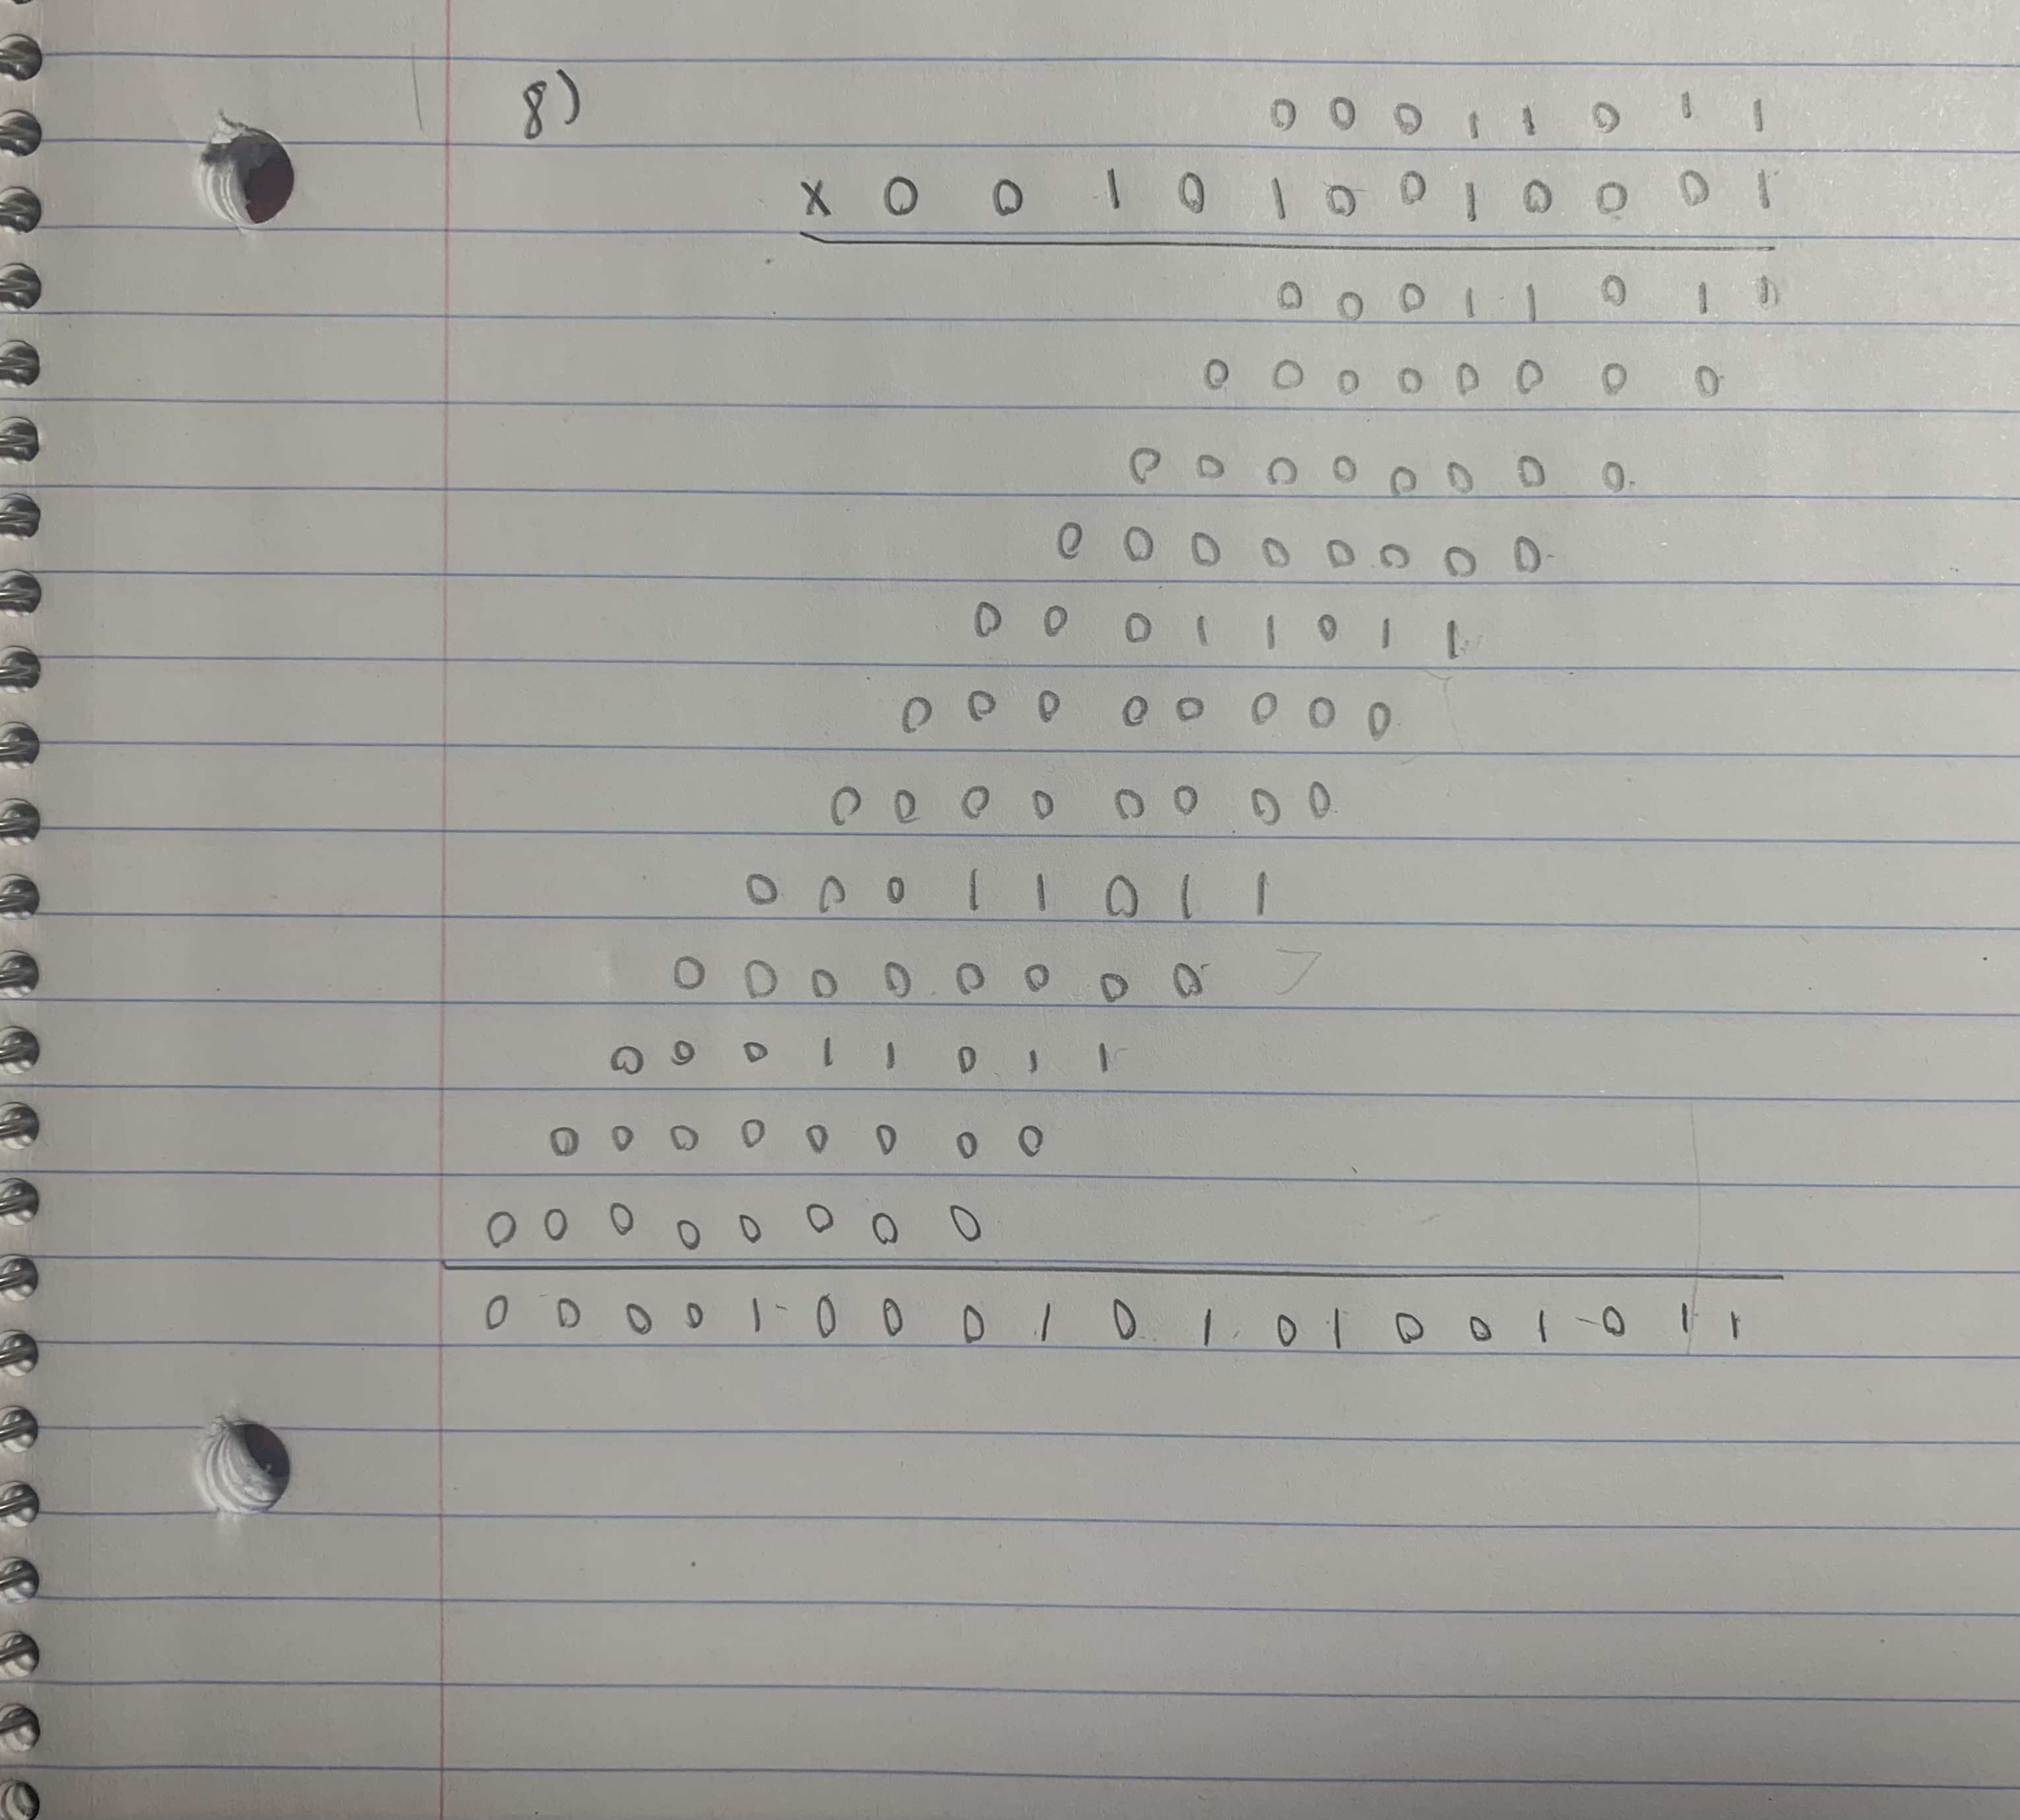 8) 0 0 0 1 1 0 1 1
x 0 0 1 0 1 0 0 1 0 0 0 1
0 0 0 1 1 0 1 1
0 0 0 0 0 0 0 0
0 0 0 0 0 0 0 0
0 0 0 0 0 0 0 0
0 0 0 1 1 0 1 1
0 0 0 0 0 0 0 0
0 0 0 0 0 0 0 0
0 0 0 1 1 0 1 1
0 0 0 0 0 0 0 0
0 0 0 1 1 0 1 1
0 0 0 0 0 0 0 0
0 0 0 0 0 0 0 0
0 0 0 0 1 0 0 0 1 0 1 0 1 0 0 1 0 1 1